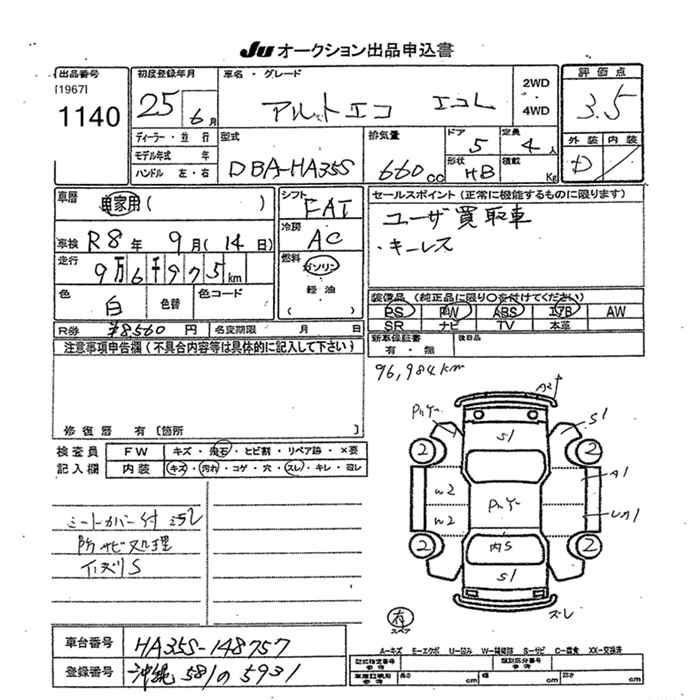 JU オークション出品申込書
出品番号
[1967]
1140
初度登録年月
25 6月
車名・グレード
アルトエコ エコL
2WD
4WD
評価点
3.5
ディーラー・並行
モデル年式 年
ハンドル 左・右
型式
DBA-HA35S
排気量
660cc
ドア
5
定員
4人
形状
HB
積載
Kg
外装 内装
D
車歴
自家用( )
シフト
FAT
セールスポイント(正常に機能するものに限ります)
ユーザ買取車
・キーレス
車検 R8年 9月(14日)
冷房
AC
走行
9万6千975km
燃料
ガソリン
軽油
( )
色
白
色替
色コード
装備品(純正品に限り○を付けてください)
PS PW ABS エアB AW
SR ナビ TV 本革
R券 ¥8560円
名変期限 月 日
新車保証書
有・無
後日品
注意事項申告欄(不具合内容等は具体的に記入して下さい)
96,984km
修復歴 有[箇所 ]
検査員
記入欄
FW キズ・飛石・ヒビ割・リペア跡・×要
内装 キズ・汚れ・コゲ・穴・スレ・キレ・凹レ
シートカバー付
防サビ処理
A2
S1
S1
2
2
A1
W2
W2
内S
2
2
S1
ズレ
有
スペア
A−キズ E−エクボ U−凹み W−補修跡 S−サビ C−腐食 XX−交換済
車台番号 HA35S-148757
登録番号 沖縄 581 の 5931
型式指定番号
類別区分番号
長さ cm
幅 cm
高さ cm